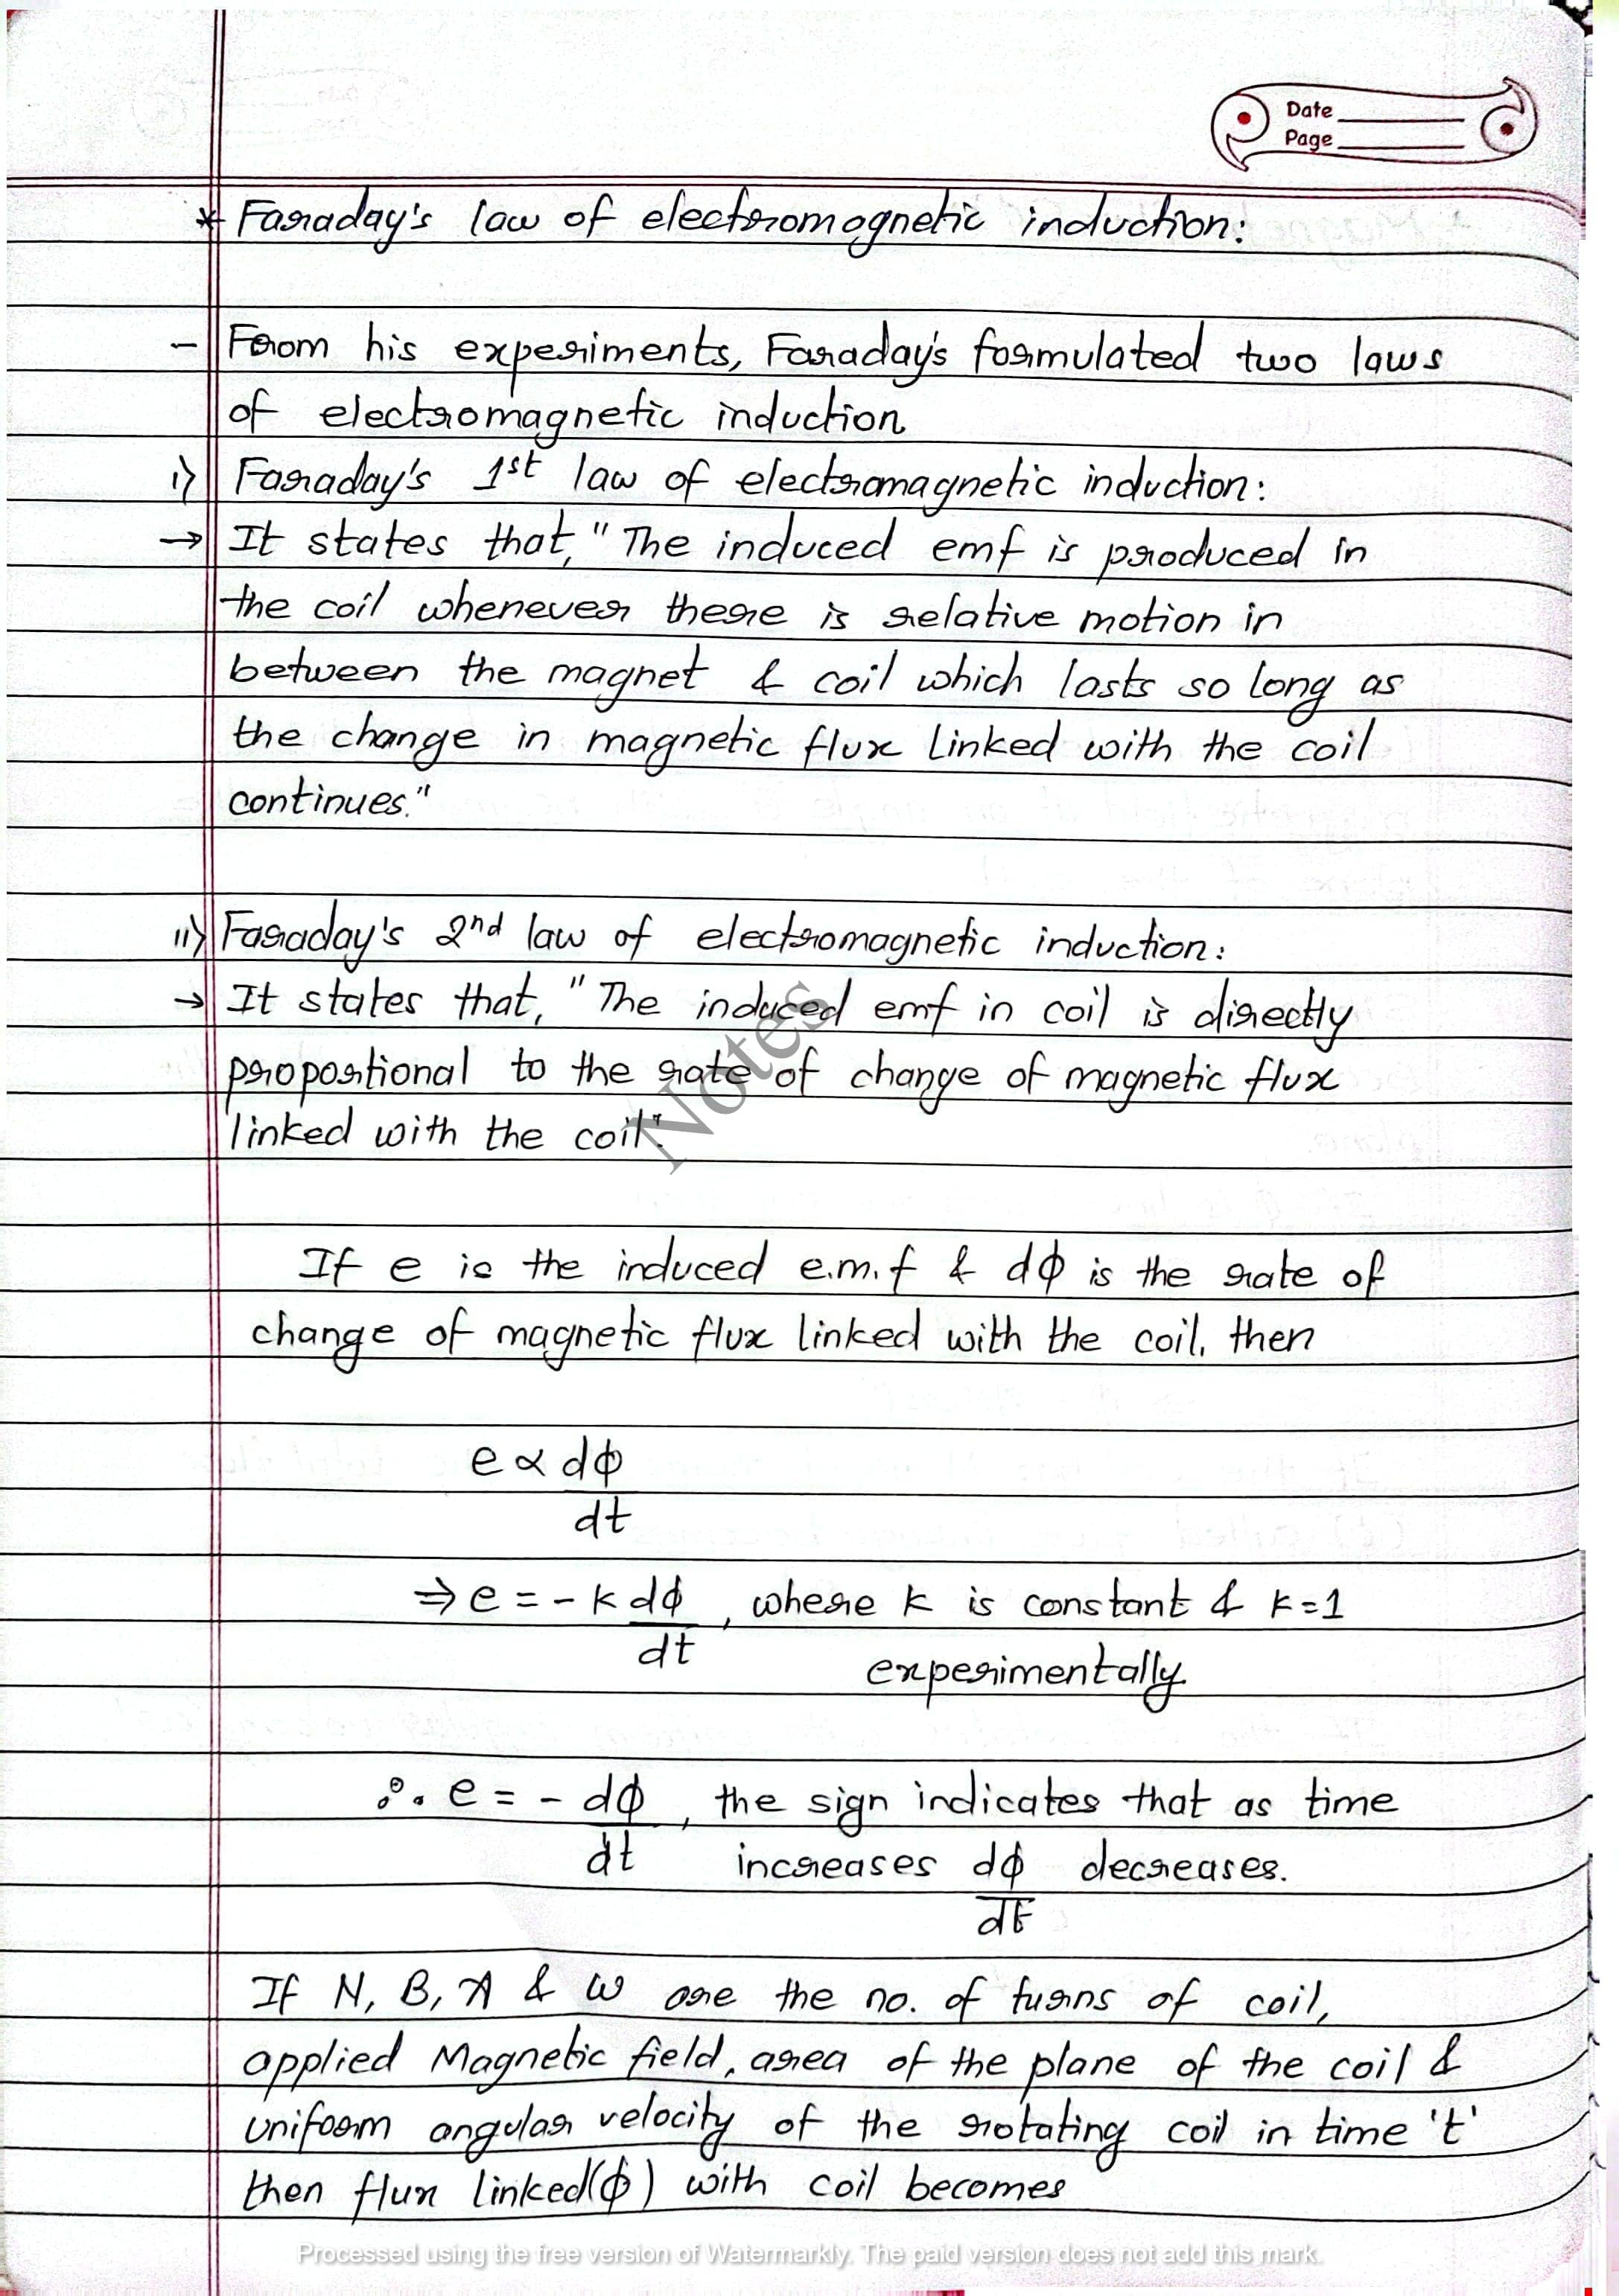 Date
Page
* Faraday's law of electromagnetic induction:
- From his experiments, Faraday's formulated two laws
of electromagnetic induction
i) Faraday's 1st law of electromagnetic induction:
→ It states that, "The induced emf is produced in
the coil whenever there is relative motion in
between the magnet & coil which lasts so long as
the change in magnetic flux linked with the coil
continues."
ii) Faraday's 2nd law of electromagnetic induction:
→ It states that, "The induced emf in coil is directly
proportional to the rate of change of magnetic flux
linked with the coil".
Notes
If e is the induced e.m.f & dϕ is the rate of
change of magnetic flux linked with the coil, then
e ∝ dϕ
dt
⇒ e = - k dϕ , where k is constant & k=1
dt experimentally.
∴ e = - dϕ , the sign indicates that as time
dt increases dϕ decreases.
dt
If N, B, A & ω are the no. of turns of coil,
applied Magnetic field, area of the plane of the coil &
uniform angular velocity of the rotating coil in time 't'
then flux linked(ϕ) with coil becomes
Processed using the free version of Watermarkly. The paid version does not add this mark.